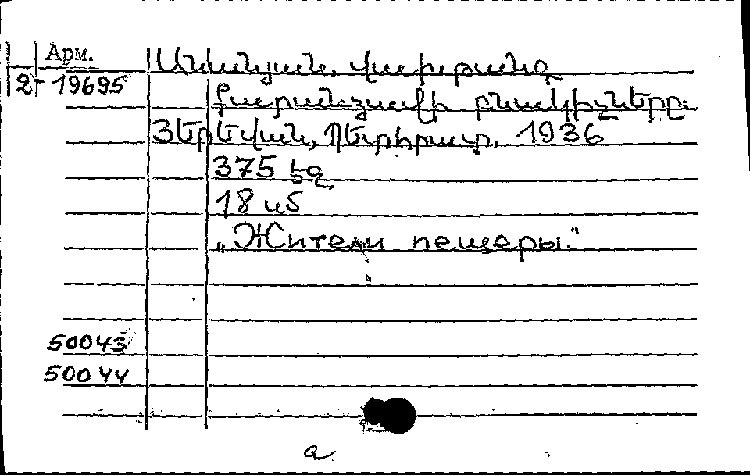 Арм.
2-19695
Անանյան, Վախթանգ
Քարանձավի բնակիչները.
Յերեվան, Պետհրատ, 1936
375 էջ
18 սմ
„Жители пещеры."
50043
50044
а